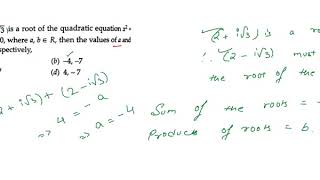 √3 is a root of the quadratic equation z² +
0, where a, b ∈ R, then the values of a and
spectively,
(b) –4, –7
(d) 4, –7
(2 + i√3) is a ro
(2 – i√3) must
the root of the
2 + i√3) + (2 – i√3)
⇒ 4 = – a
⇒ a = –4
Sum of the roots = –
Product of roots = b.